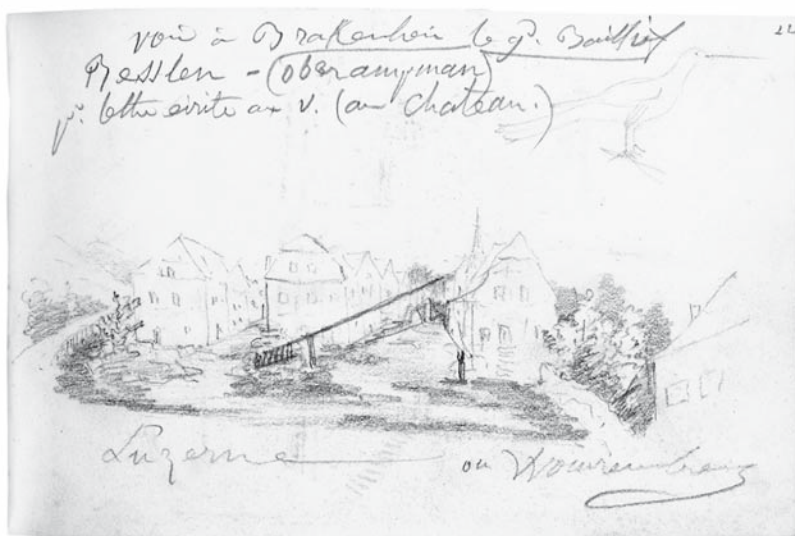 22
voir à Brakenheim le gd. Bailli
Resslen - (oberampman)
pr. lettre écrite au V. (au chateau.)
Luzerne ou